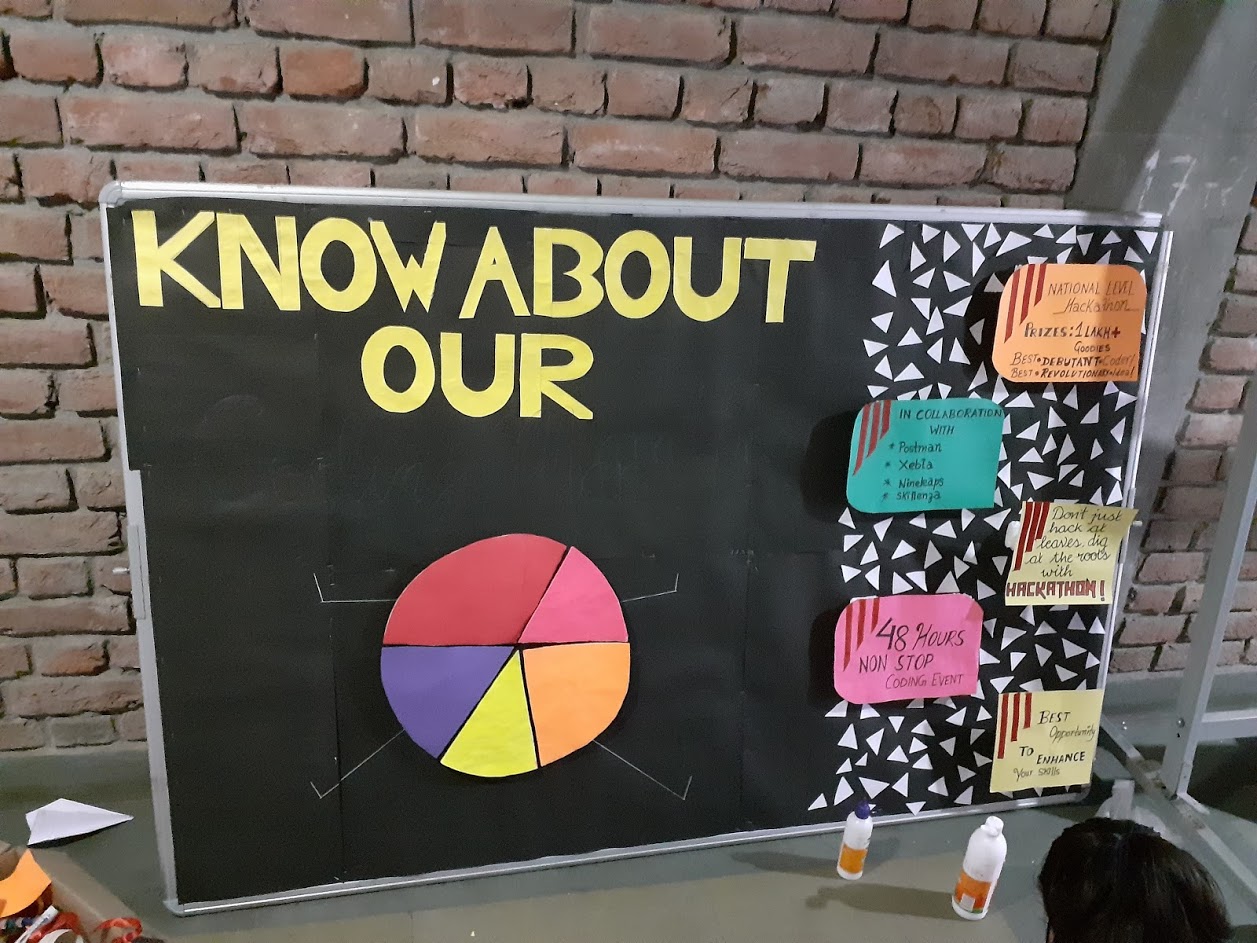 KNOW ABOUT
OUR
NATIONAL LEVEL
Hackathon
PRIZES: 1 LAKH+
GOODIES
BEST • DEBUTANT • Coder!
BEST • REVOLUTIONARY • idea!
IN COLLABORATION
WITH
* Postman
* Xebia
* Nineleaps
* Skillenza
Don't just
hack at
leaves, dig
at the roots
with
HACKATHON!
48 HOURS
NON STOP
CODING EVENT
BEST
Opportunity
TO ENHANCE
Your Skills